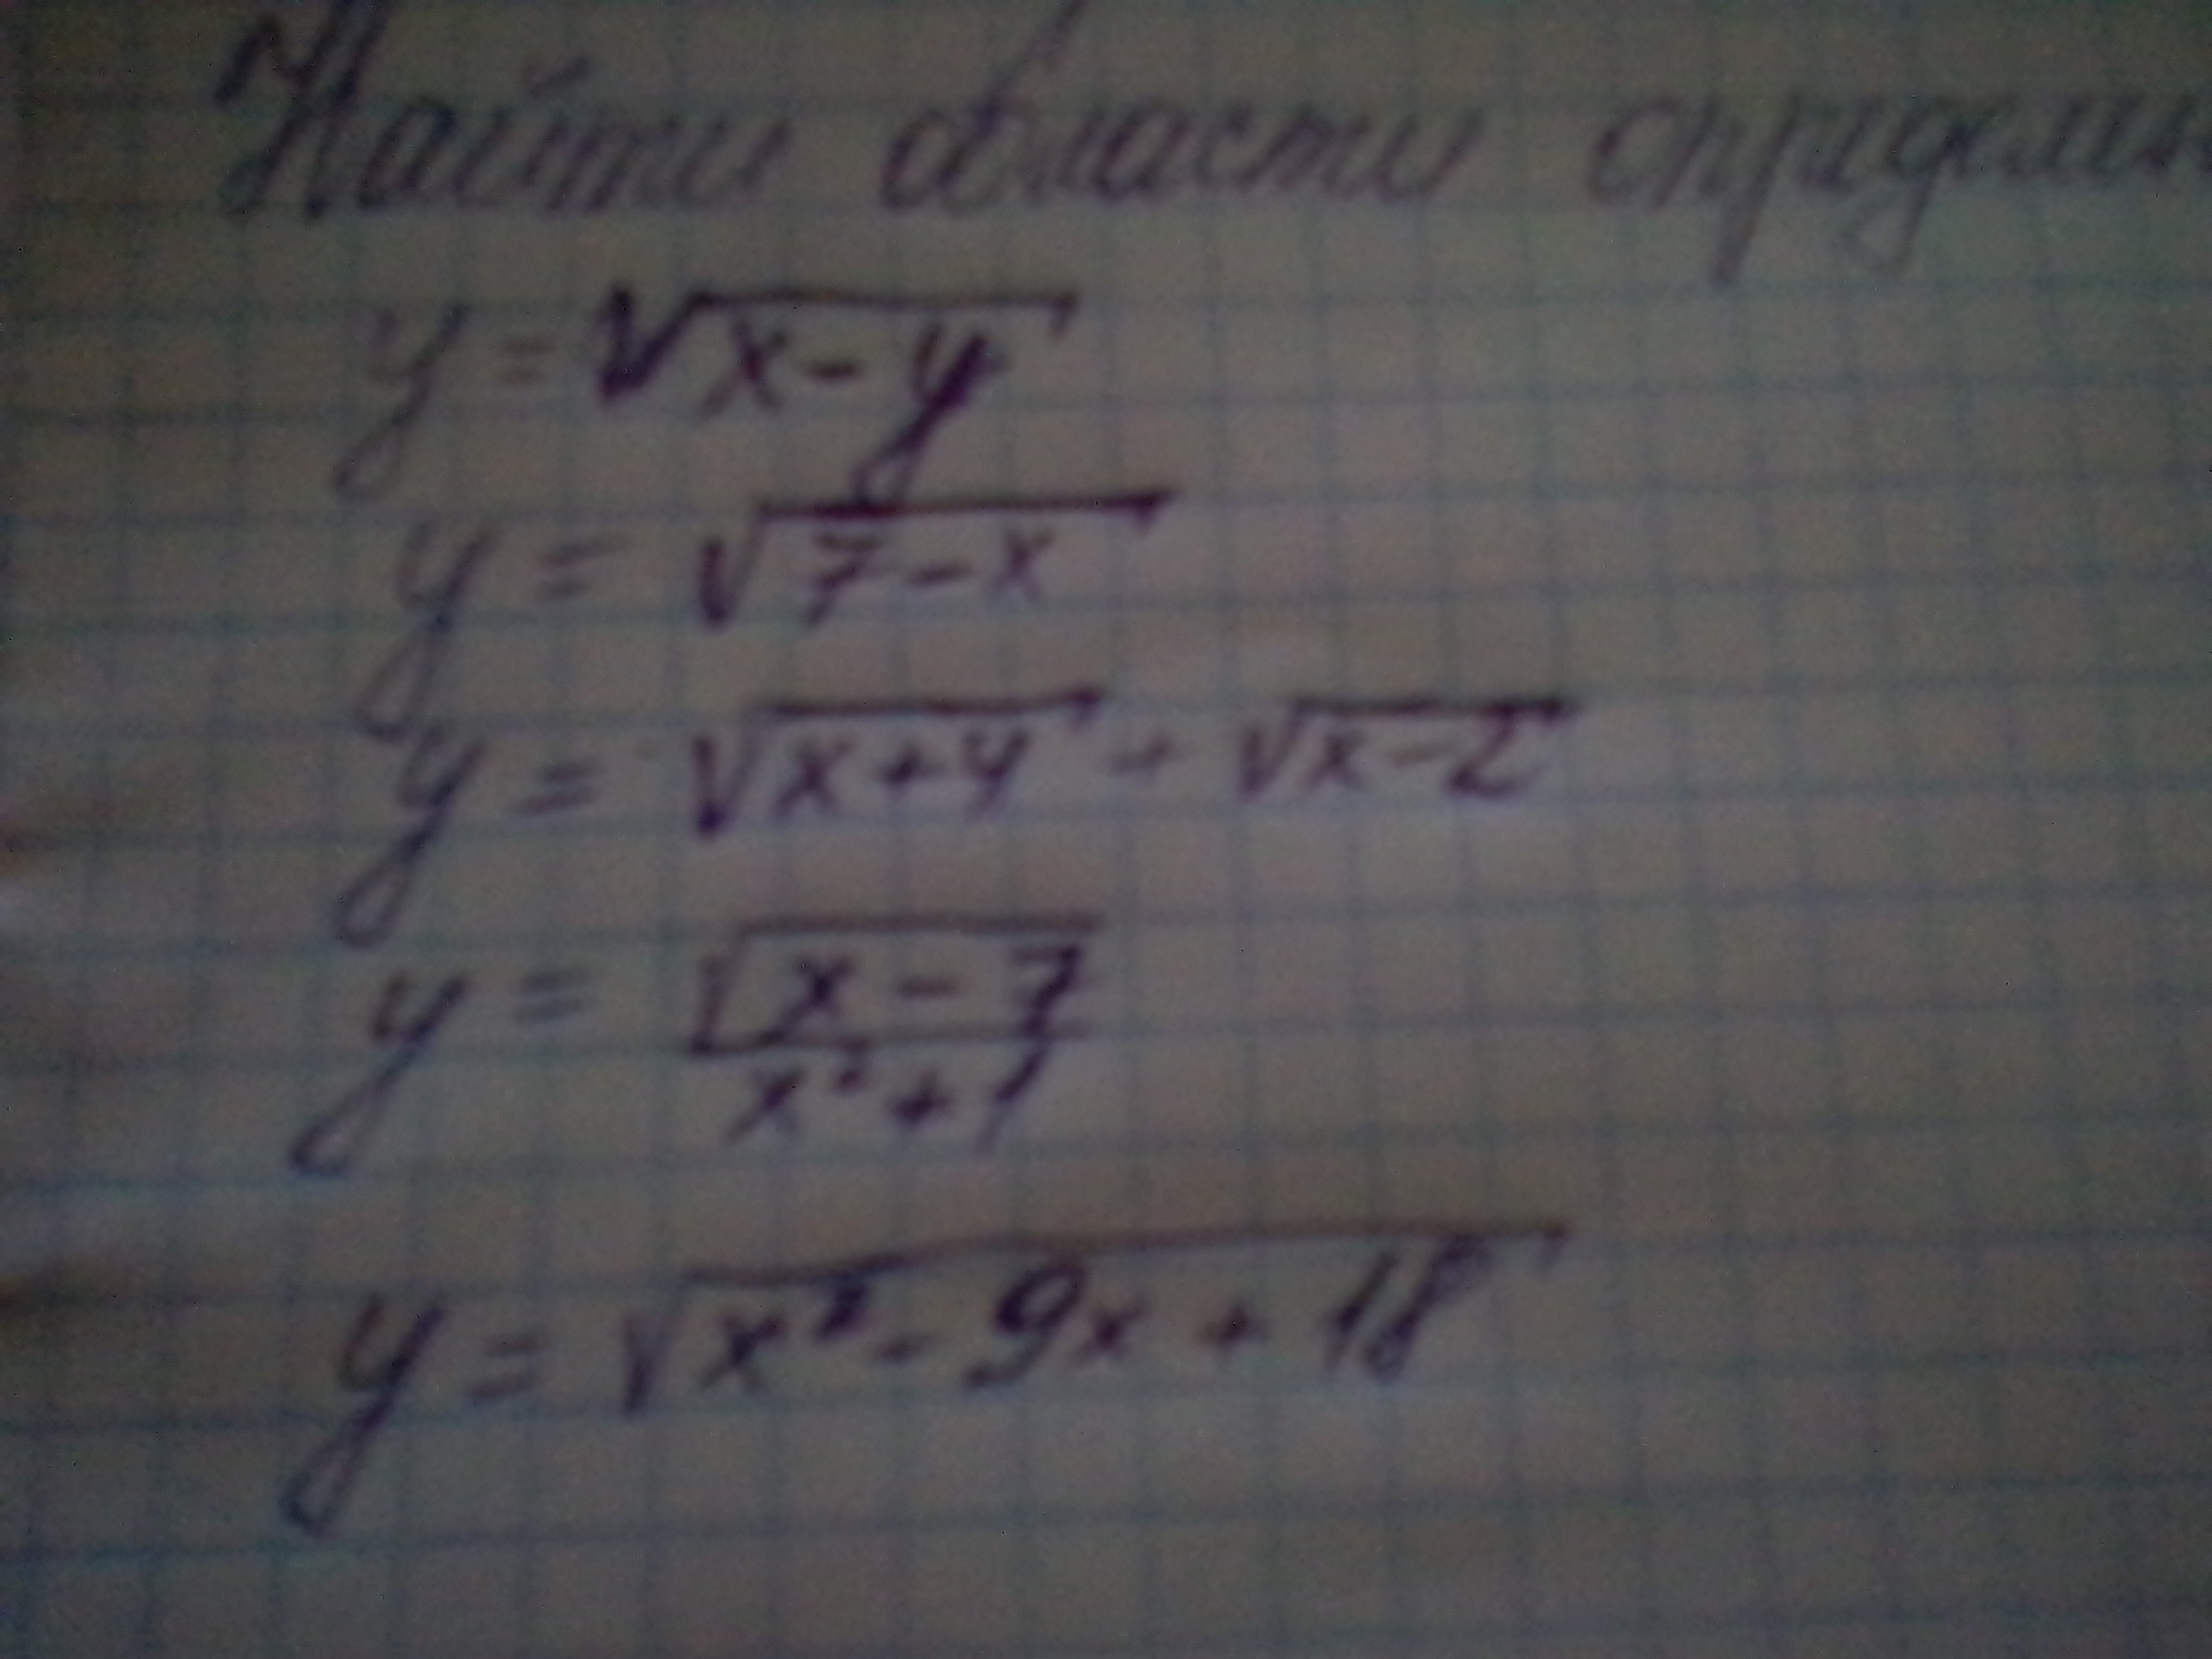 Найти области определен
y = √x - y
y = √7 - x
y = √x + 4 + √x - 2
y = √x - 7 / x² + 1
y = √x² - 9x + 18